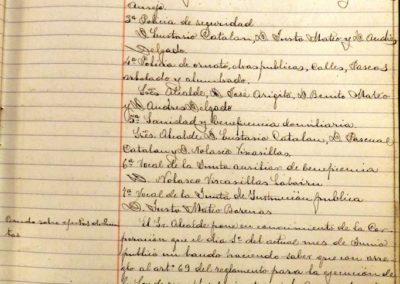 Ansejo.
3ª Policia de seguridad
D. Eustario Catalan, D. Justo Mateo y D. Andrés
Delgado
4ª Policia de ornato, obras publicas, Calles, Paseos
arbolado y alumbrado.
Sres Alcalde, D. José Arigita, D. Benito Mateo
y D. Andres Delgado
5ª Sanidad y beneficencia domiciliaria.
Sres. Alcalde D. Eustario Catalan, D. Pascual
Catalan y D. Nolasco Virasillas
6ª Vocal de la Junta auxiliar de beneficencia
D. Nolasco Virasillas Labairu
7ª Vocal de la Junta de Instruccion publica
D. Justo Mateo
Bando sobre
El Sr. Alcalde pone en conocimiento de la Cor-
poracion que el dia 1º del actual mes de
publicó un bando haciendo saber que con arre-
glo al artº 69 del reglamento para la ejecucion de